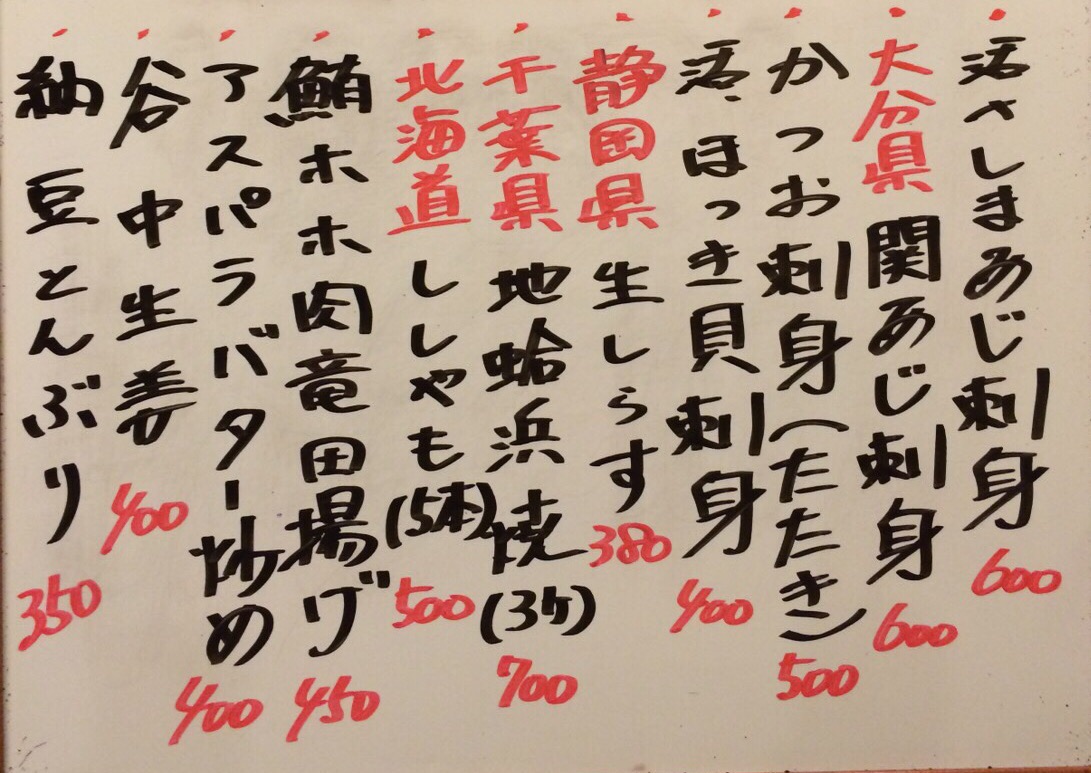 活さしまあじ刺身 600
大分県 関あじ刺身 600
かつお刺身(たたき) 500
活、ほっき貝刺身 400
静岡県 生しらす 380
千葉県 地蛤浜焼(3ケ) 700
北海道 ししゃも(5本) 500
鮪ホホ肉竜田揚げ 450
アスパラバター炒め 400
谷中生姜 400
納豆とんぶり 350